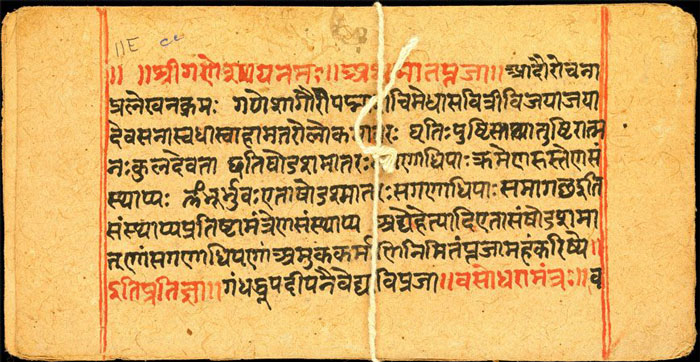 ॥ ॥श्रीगणेशायनमः॥ ॥आदौरोचना
प्रलेखनक्रमः गणेशगौरी मेधासवित्रीविजयाजया
देवसेनास्वधास्वाहामातरोलोकमातरः धृतिःपुष्टिस्तथातुष्टिरात्म
नःकुलदेवता षोडशमातरः सगणाधिपाः क्रमेण
स्थाप्यः ॐभूर्भुवःएताषोडशमातरःसगणाधिपाःसमागछइति
संस्थाप्यप्रतिष्ठामंत्रेणसंस्थाप्य अद्येहेत्यादिएतासंषोडशमा
तृणांसगणाधिपाणां अमुककर्माणिनिमितंपूजामहंकरिष्ये॥
इतिप्रतिज्ञा॥गंधधूपदीपनैवेद्यविपूजा॥वसोधरामंत्रः॥व